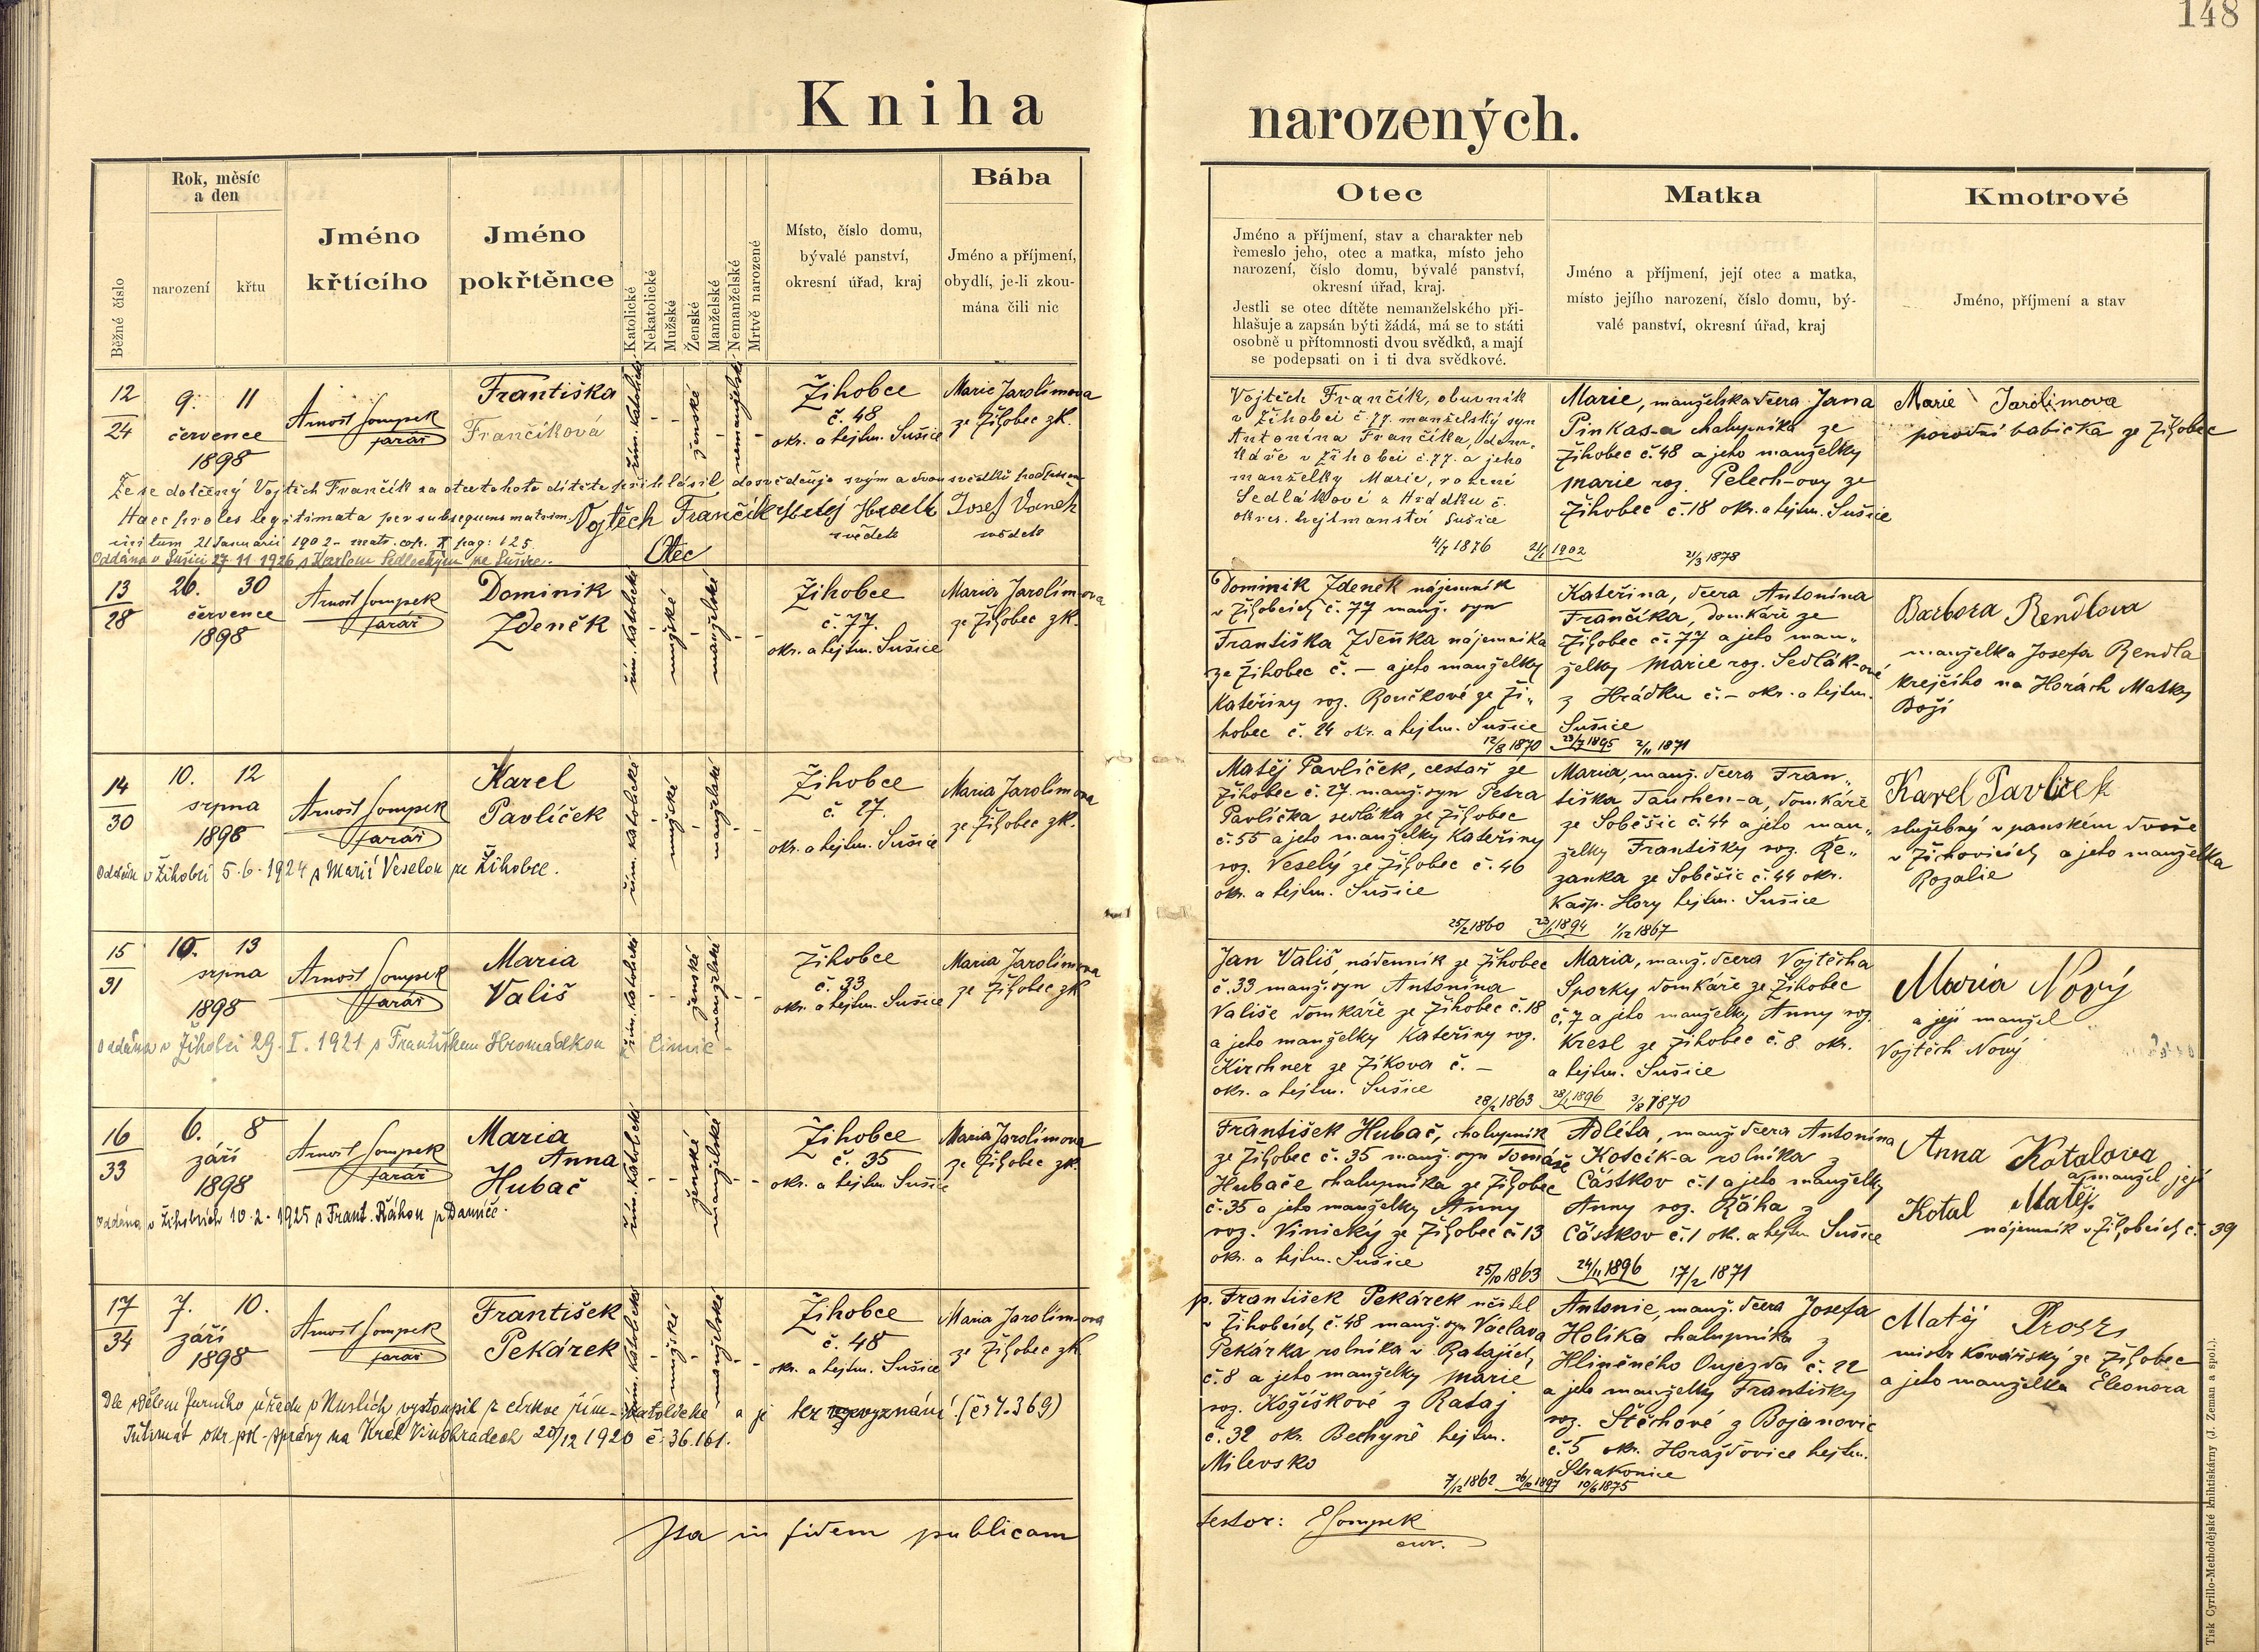 148
Kniha narozených.
Běžné číslo
Rok, měsíc
a den
narození
křtu
Jméno
křtícího
Jméno
pokřtěnce
Katolické
Nekatolické
Mužské
Ženské
Manželské
Nemanželské
Mrtvě narozené
Místo, číslo domu,
bývalé panství,
okresní úřad, kraj
Bába
Jméno a příjmení,
obydlí, je-li zkou-
mána čili nic
Otec
Jméno a příjmení, stav a charakter neb
řemeslo jeho, otec a matka, místo jeho
narození, číslo domu, bývalé panství,
okresní úřad, kraj.
Jestli se otec dítěte nemanželského při-
hlašuje a zapsán býti žádá, má se to státi
osobně u přítomnosti dvou svědků, a mají
se podepsati on i ti dva svědkové.
Matka
Jméno a příjmení, její otec a matka,
místo jejího narození, číslo domu, bý-
valé panství, okresní úřad, kraj
Kmotrové
Jméno, příjmení a stav
12
24
9. 11
července
1898
Arnošt Sompek
farář
Františka
Frančíková
řím. katolické
ženské
nemanželské
Žihobce
č. 48
okr. a hejtm. Sušice
Marie Jarolímova
ze Žihobec zk.
Vojtěch Frančík, obuvník
v Žihobci č. 77. manželský syn
Antonína Frančíka, dom-
káře v Žihobci č. 77. a jeho
manželky Marie, rozené
Sedlákové z Hrádku č.
okres. hejtmanství Sušice
4/7 1876
21/1 1902
Marie, manželská dcera Jana
Pinkas-a chalupníka ze
Žihobec č. 48 a jeho manželky
Marie roz. Pelech-ovy ze
Žihobec č. 18 okr. a hejtm. Sušice
21/3 1878
Marie Jarolimova
porodní babička ze Žihobec
Že se dotčený Vojtěch Frančík za otce tohoto dítěte přihlásil dosvědčuje svým a dvou svědků podpisem
Haec proles legitimata per subsequens matrim.
initum 21 Januarii 1902 - matr. cop. X pag: 125.
Vojtěch Frančík
Otec
svědek
Josef Vaněk
svědek
Oddána v Sušici 27.11.1926 s Karlem Sedleckým ze Sušice.
13
28
26. 30
července
1898
Arnošt Sompek
farář
Dominik
Zdeněk
řím. katolické
mužské
manželské
Žihobce
č. 77.
okr. a hejtm. Sušice
Maria Jarolímova
ze Žihobec zk.
Dominik Zdeněk nájemník
v Žihobcích č. 77 manž. syn
Františka Zdeňka nájemníka
ze Žihobec č. — a jeho manželky
Kateřiny roz. Roučkové ze Ži-
hobec č. 24 okr. a hejtm. Sušice
12/8 1870
Kateřina, dcera Antonína
Frančíka, domkáře ze
Žihobec č. 77 a jeho man-
želky Marie roz. Sedlák-ové
z Hrádku č. — okr. a hejtm.
Sušice
1895 2/11 1871
Barbora Rendlova
manželka Josefa Rendla
krejčího na Horách Matky
Boží
14
30
10. 12
srpna
1898
Arnošt Sompek
farář
Karel
Pavlíček
řím. katolické
mužské
manželské
Žihobce
č. 27.
okr. a hejtm. Sušice
Maria Jarolímova
ze Žihobec zk.
Matěj Pavlíček, cestář ze
Žihobec č. 27. manž. syn Petra
Pavlíčka sedláka ze Žihobec
č. 55 a jeho manželky Kateřiny
roz. Veselý ze Žihobec č. 46
okr. a hejtm. Sušice
25/2 1860
Maria, manž. dcera Fran-
tiška Tauchen-a, domkáře
ze Soběšic č. 44 a jeho man-
želky Františky roz. Ře-
zanka ze Soběšic č. 44 okr.
Kašp. Hory hejtm. Sušice
23/1 1894 1/12 1867
Karel Pavlíček
služebný v panském dvoře
v Žichovicích a jeho manželka
Rozalie
Oddán v Žihobci 5.6.1924 s Marií Veselou ze Žihobce.
15
31
10. 13
srpna
1898
Arnošt Sompek
farář
Maria
Vališ
řím. katolické
ženské
manželské
Žihobce
č. 33
okr. a hejtm. Sušice
Maria Jarolímova
ze Žihobec zk
Jan Vališ, nádenník ze Žihobec
č. 33 manž. syn Antonína
Vališe domkáře ze Žihobec č. 18
a jeho manželky Kateřiny roz.
Kirchner ze Žíkova č. —
okr. a hejtm. Sušice
28/2 1863
Maria, manž. dcera Vojtěcha
Sporky domkáře ze Žihobec
č. 7 a jeho manželky Anny roz.
Kresl ze Žihobec č. 8 okr.
a hejtm. Sušice
1896 3/8 1870
Maria Nový
a její manžel
Vojtěch Nový
Oddána v Žihobci 29. I. 1921 s Františkem Hromádkou z Čimic -
16
33
6. 8
září
1898
Arnošt Sompek
farář
Maria
Anna
Hubač
řím. katolické
ženské
manželské
Žihobce
č. 35
okr. a hejtm. Sušice
Maria Jarolímova
ze Žihobec zk.
František Hubač, chalupník
ze Žihobec č. 35 manž. syn Tomáše
Hubače chalupníka ze Žihobec
č. 35 a jeho manželky Anny
roz. Vinický ze Žihobec č. 13
okr. a hejtm. Sušice
25/10 1863
Adléta, manž. dcera Antonína
Koscík-a rolníka z
Částkov č. 1 a jeho manželky
Anny roz. Ráha z
Částkov č. 1 ok. a hejtm Sušice
24/11 1896 17/2 1871
Anna Kotalova
a manžel její
Kotal Matěj
nájemník v Žihobcích č. 39
Oddána v Žihobcích 10.2.1925 s Frant. Ráhou z Damíče.
17
34
7. 10.
září
1898
Arnošt Sompek
farář
František
Pekárek
řím. katolické
mužské
manželské
Žihobce
č. 48
okr. a hejtm. Sušice
Maria Jarolímova
ze Žihobec zk
p. František Pekárek učitel
v Žihobcích č. 48 manž. syn Václava
Pekárka rolníka v Ratajích
č. 8 a jeho manželky Marie
roz. Kožíškové z Rataj
č. 32 okr. Bechyně hejtm.
Milevsko
7/12 1862
1897
Antonie, manž. dcera Josefa
Holíka chalupníka z
Hliněného Oujezda č. 22
a jeho manželky Františky
roz. Stěchové z Bojanovic
č. 5 okr. Horažďovice hejtm.
Strakonice
10/6 1875
Matěj
mistr kovářský ze Žihobec
a jeho manželka Eleonora
Dle sdělení farního úřadu v Nuslích vystoupil z církve řím-katolické a je bez vyznání (čs 7.369)
Intimát okr. pol. správy na Král Vinohradech 20/12 1920 č. 36.161.
Ita in fidem publicam
testor: Sompek
cur.
Tisk Cyrillo-Methodějské knihtiskárny (J. Zeman a spol.).